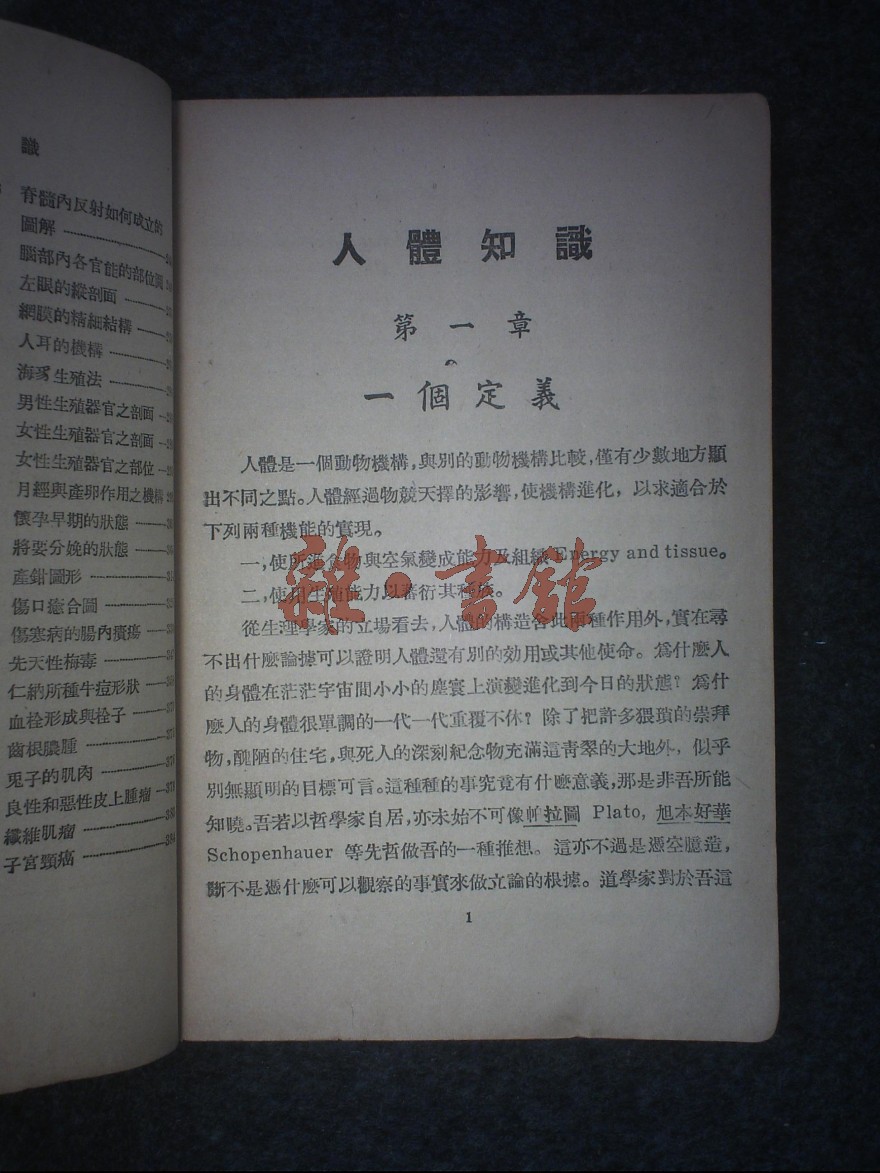 識
脊髓內反射如何成立的
圖解
腦部內各官能的部位圖
左眼的縱剖面
網膜的精細結構
人耳的機構
海豸生殖法
男性生殖器官之剖面
女性生殖器官之剖面
女性生殖器官之部位
月經與產卵作用之機構
懷孕早期的狀態
將要分娩的狀態
產鉗圖形
傷口癒合圖
傷寒病的腸內潰瘍
先天性梅毒
仁納所種牛痘形狀
血栓形成與栓子
齒根膿腫
兎子的肌肉
良性和惡性皮上腫瘤
纖維肌瘤
子宮頸癌
人體知識
第一章
一個定義
人體是一個動物機構,與別的動物機構比較,僅有少數地方顯
出不同之點。人體經過物競天擇的影響,使機構進化,以求適合於
下列兩種機能的實現。
一,使所進食物與空氣變成能力及組織 Energy and tissue。
二,使用生殖能力以蕃衍其種族。
從生理學家的立場看去,人體的構造各此兩種作用外,實在尋
不出什麼論據可以證明人體還有別的効用或其他使命。爲什麼人
的身體在茫茫宇宙間小小的塵寰上演變進化到今日的狀態?爲什
麼人的身體很單調的一代一代重覆不休?除了把許多猥瑣的崇拜
物,醜陋的住宅,與死人的深刻紀念物充滿這靑翠的大地外,似乎
別無顯明的目標可言。這種種的事究竟有什麼意義,那是非吾所能
知曉。吾若以哲學家自居,亦未始不可像帕拉圖 Plato, 旭本好華
Schopenhauer 等先哲做吾的一種推想。這亦不過是憑空臆造,
斷不是憑什麼可以觀察的事實來做立論的根據。道學家對於吾這
1
雜·書館